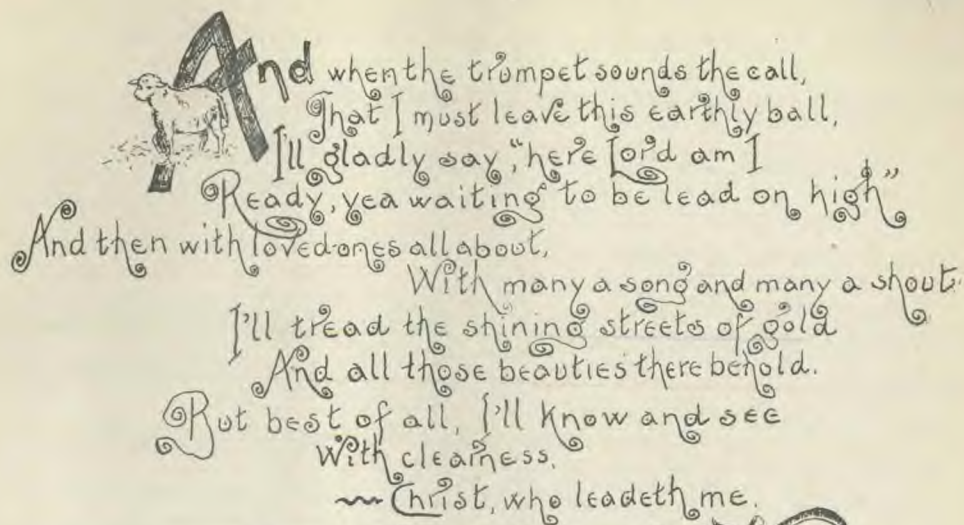 And when the trumpet sounds the call,
That I must leave this earthly ball,
I'll gladly say, "here Lord am I
Ready, yea waiting to be lead on high"
And then with loved ones all about,
With many a song and many a shout
I'll tread the shining streets of gold
And all those beauties there behold.
But best of all, I'll know and see
With clearness,
~ Christ, who leadeth me.